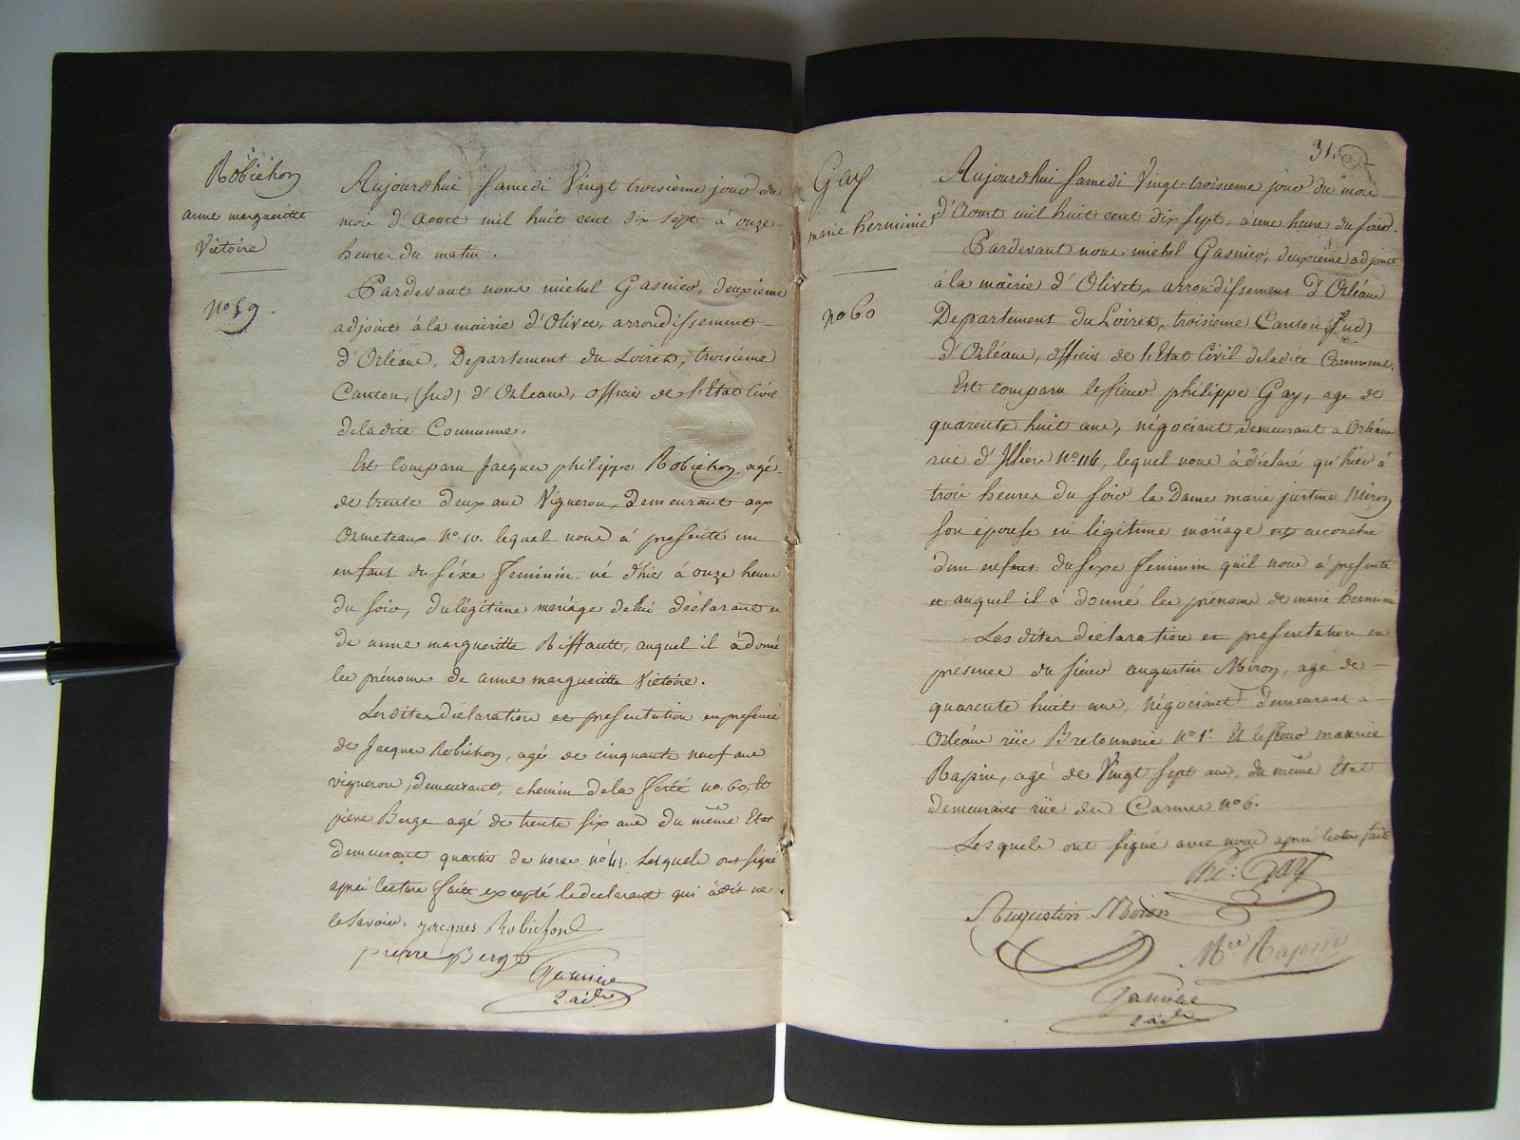 Robichon
anne margueritte
Victoire
no 59.
Aujourdhui Samedi Vingt troisième jour du
mois d'Aout mil huit cent dix sept à onze
heures du matin.
Pardevant nous michel Gasnier, deuxieme
adjoint à la mairie d'Olivet, arrondissement
d'Orléans, Departement du Loiret, troisieme
Canton, (Sud) d'Orleans, officier de l'Etat Civil
deladite Commune.
Est Comparu Jacques philippe Robichon, agé
de trente deux ans Vigneron, Demeurant aux
Ormeteaux No 10. lequel nous à présenté un
enfant du séxe feminin né d'hier à onze heures
du soir, du légitime mariage delui déclarant et
de anne margueritte Riffault, auquel il à donné
les prénoms de anne margueritte Victoire.
Lesdites declaration et presentation en presence
de Jacques Robichon, agé de cinquante neuf ans
vigneron, demeurant, chemin dela ferté no. 60, et
pierre Berge agé de trente six ans du même Etat
demeurant quartier de no 41. Lesquels ont signé
après lecture faitte excepté le declarant qui à dit ne
le Savoir. Jacques Robichon
pierre Berge
Gasnier
2 adj
31.
Gay
marie herminie
no 60
Aujourdhui Samedi Vingt troisieme jour du mois
d'Aout mil huit cent dix sept, à une heure du soir.
Pardevant nous michel Gasnier, deuxième adjoint
à la mairie d'Olivet, arrondissement d'Orléans
Departement du Loiret, troisieme Canton (Sud)
d'Orléans, officier de l'Etat Civil deladite Commune.
Est comparu le Sieur philippe Gay, age de
quarente huit ans, négociant demeurant a Orléans
rue d'Illiers No 116, lequel nous à déclaré qu'hier à
trois heures du soir la Dame marie justine Miron
son épouse en légitime mariage est accouchée
d'un enfant du sexe feminin qu'il nous à presenté
et auquel il à donné les prénoms de marie herminie
Les dites déclaration et presentation en
presence du sieur augustin Miron, agé de
quarente huit ans, négociant demeurant a
Orléans rüe Bretonnerie No 1er. Et le Sieur maurice
Rapin, agé de Vingt sept ans, du même Etat
demeurant rüe des Carmes no 6.
Lesquels ont signé avec nous après lecture faite
Phe. Gay
Augustin Miron
Mce Rapin
Gasnier
2 adj